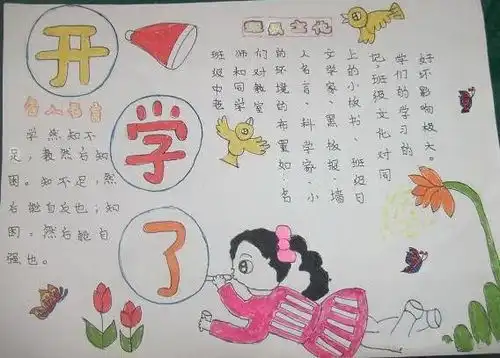 开
学
了
名人名言
学然知不
足，教然后知
困。知不足，然
后能自反也；知
困，然后能自
强也。
班级文化
班级中老
师和同学
们对教室
的环境的布置如：名
人名言、科学家、小
文学家、黑板报、墙
上的小板书 班级日
记，班级文化对同
学们的学习的
好坏影响极大。